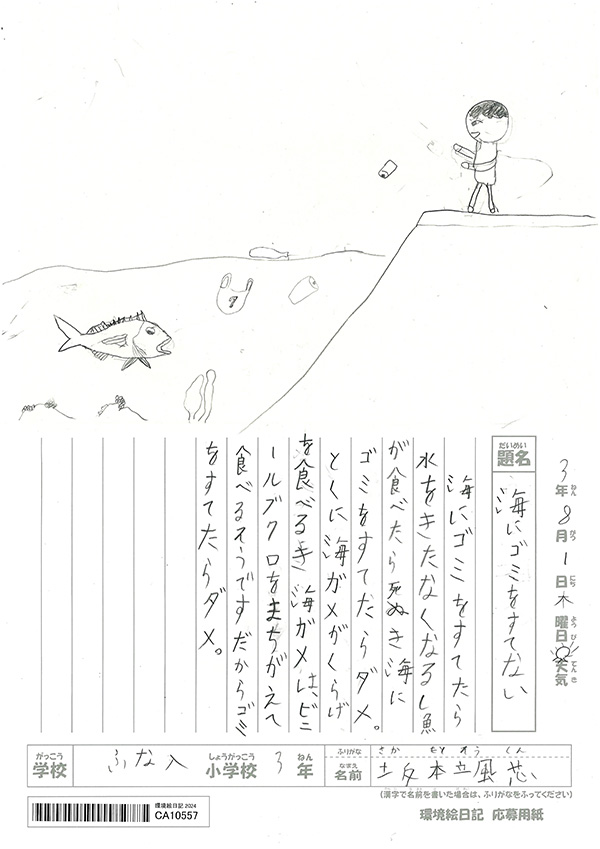 3年8月1日木曜日天気
ねん がつ にち ようび てんき
だいめい
題名
海にゴミをすてない
海にゴミをすてたら
水をきたなくなるし魚
が食べたら死ぬき海に
ゴミをすてたらダメ。
とくに海ガメがくらげ
を食べるき海ガメは、ビニ
ールブクロをまちがえて
食べるそうですだからゴミ
をすてたらダメ。
がっこう
学校
ふな入
しょうがっこう
小学校
3
ねん
年
ふりがな
さかもとそうしん
なまえ
名前
坂本
(漢字で名前を書いた場合は、ふりがなをふってください)
環境絵日記 2024
CA10557
環境絵日記 応募用紙